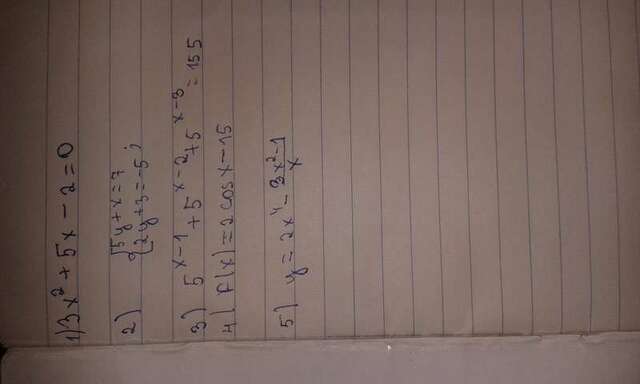 1) 3x² + 5x - 2 = 0
2) { 5y + x = 7
{ 2y + 3 = -5;
3) 5^(x-1) + 5^(x-2) + 5^(x-3) = 155
4) f(x) = 2cosx - 15
5) y = 2x⁴ - (3x² - 1)/x